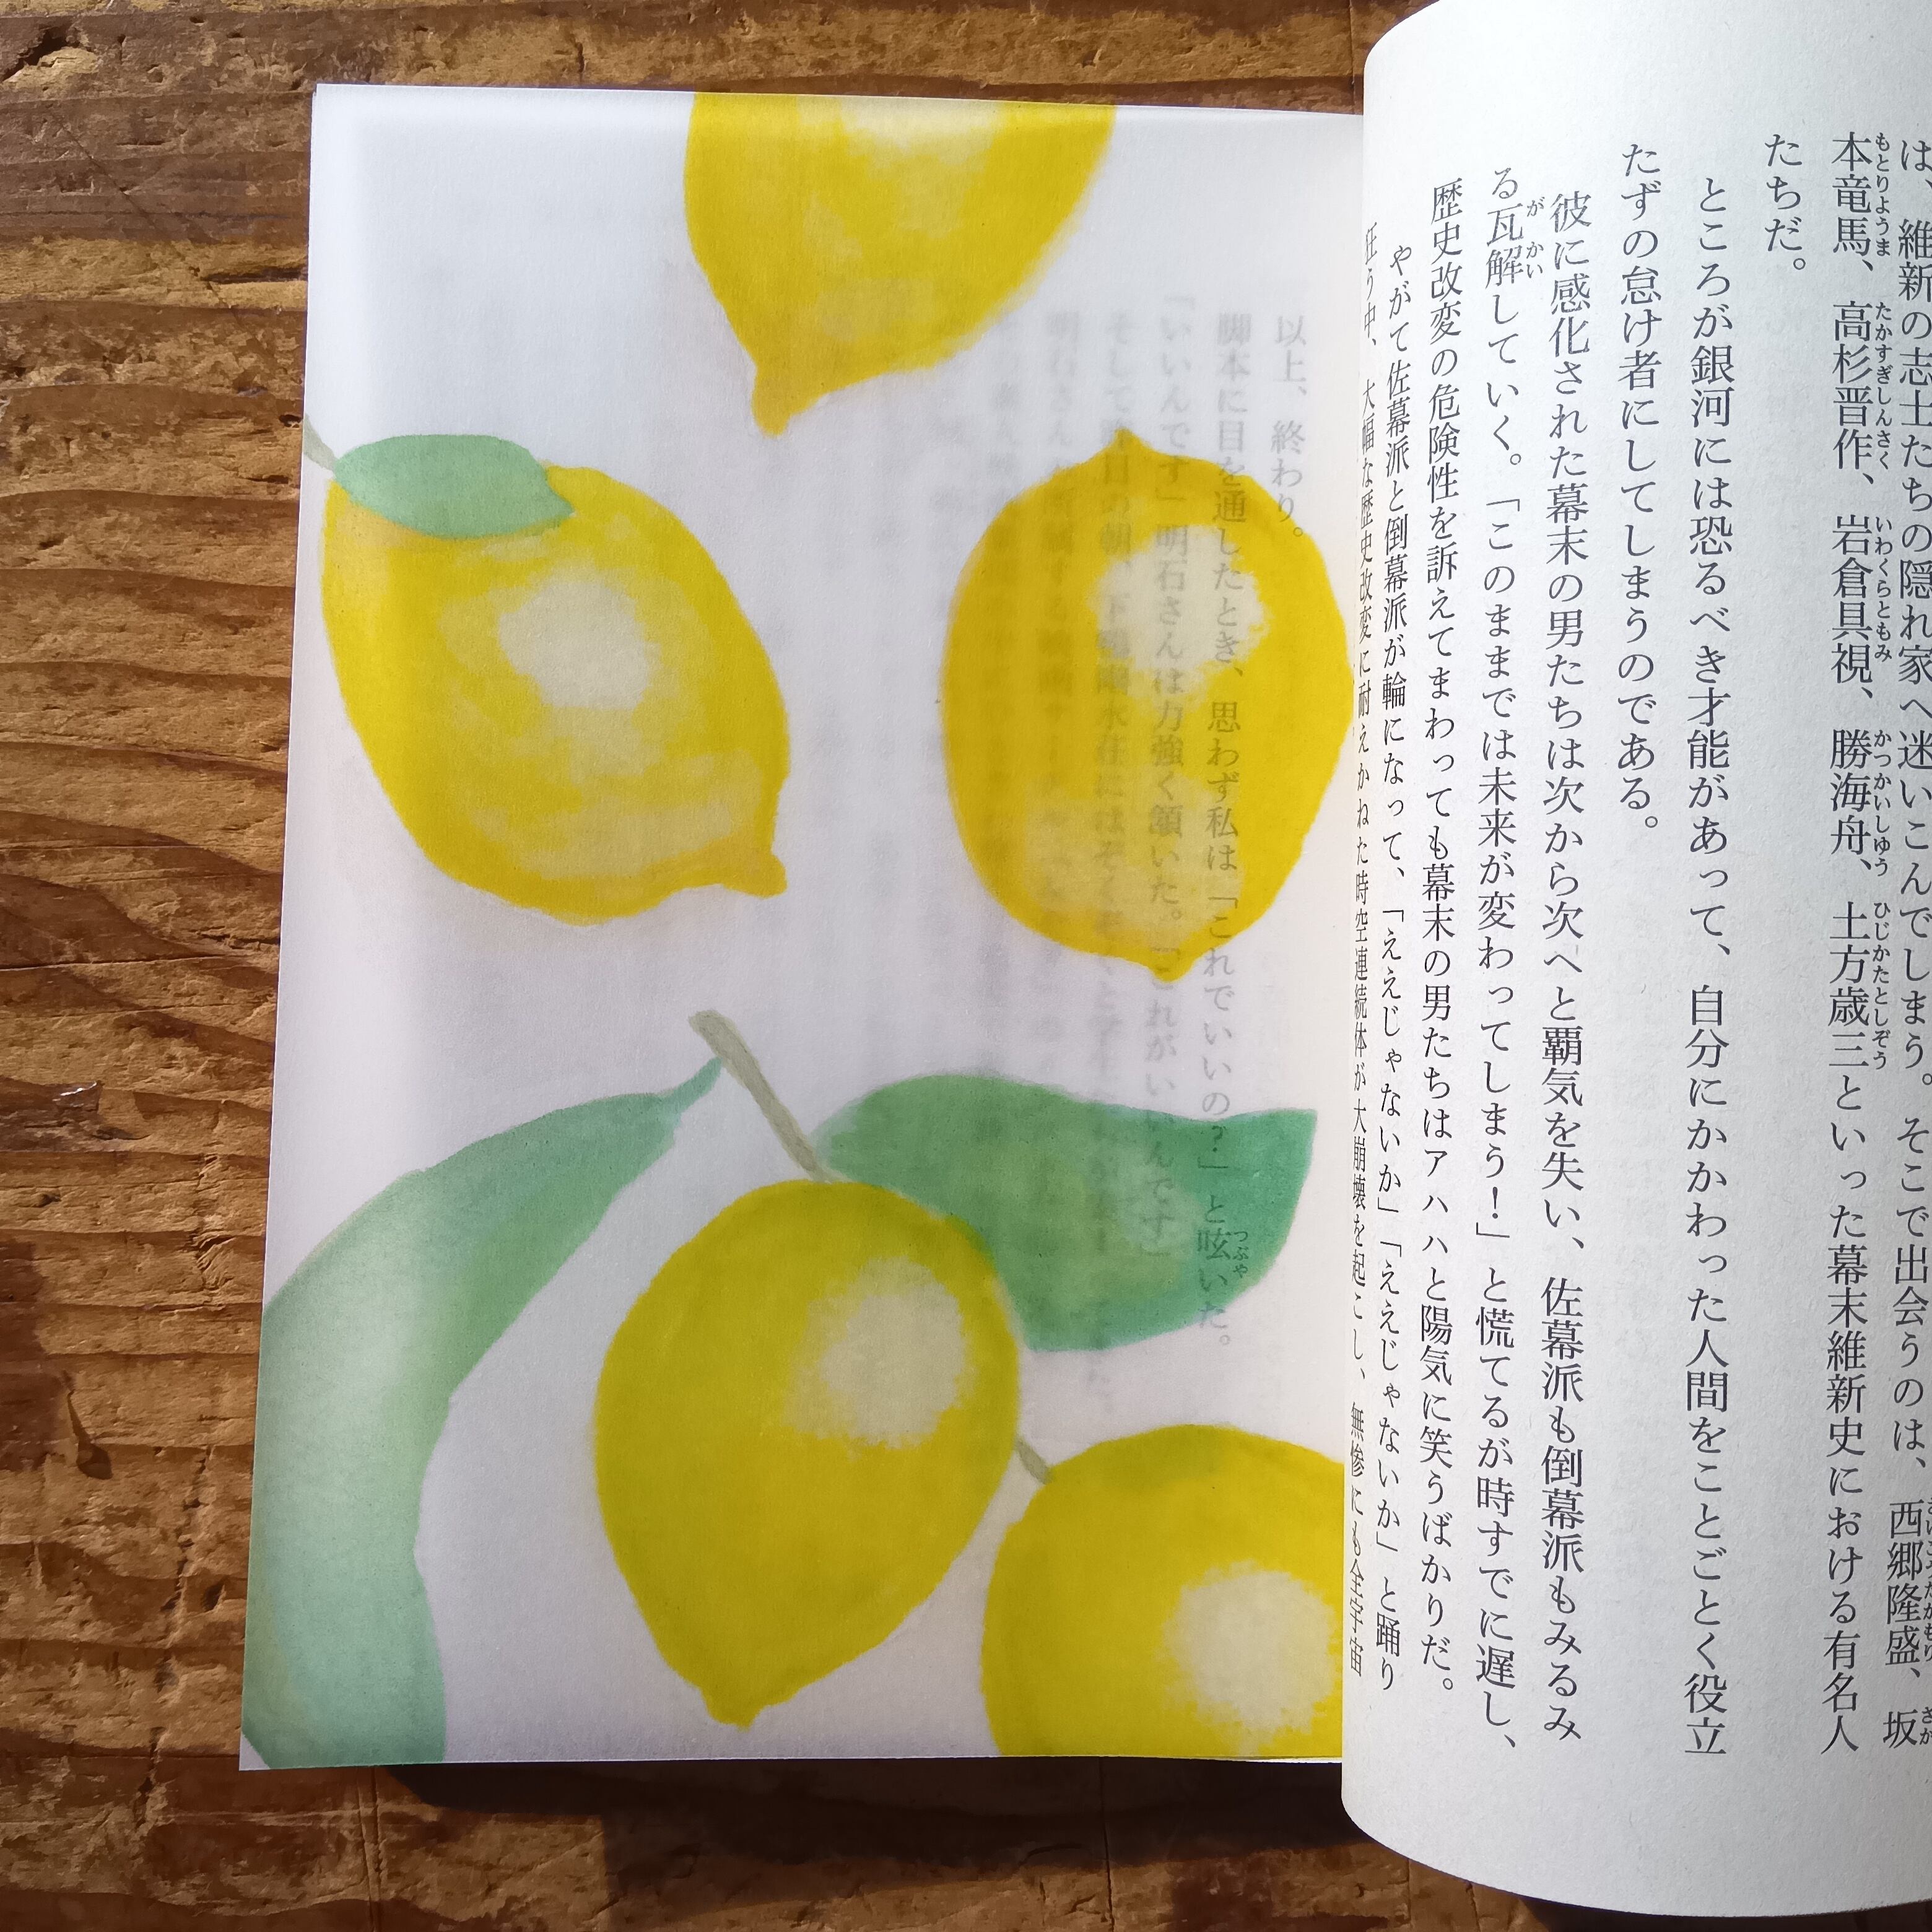 は、維新の志士たちの隠れ家へ迷いこんでしまう。そこで出会うのは、西郷隆盛、坂
本竜馬、高杉晋作、岩倉具視、勝海舟、土方歳三といった幕末維新史における有名人
たちだ。
ところが銀河には恐るべき才能があって、自分にかかわった人間をことごとく役立
たずの怠け者にしてしまうのである。
彼に感化された幕末の男たちは次から次へと覇気を失い、佐幕派も倒幕派もみるみ
る瓦解していく。「このままでは未来が変わってしまう！」と慌てるが時すでに遅し、
歴史改変の危険性を訴えてまわっても幕末の男たちはアハハハと陽気に笑うばかりだ。
やがて佐幕派と倒幕派が輪になって、「ええじゃないか」「ええじゃないか」と踊り
狂う中、大幅な歴史改変に耐えかねた時空連続体が大崩壊を起こし、無惨にも全宇宙
以上、終わり。
脚本に目を通したとき、思わず私は「これでいいの？」と呟いた。
「いいんです」明石さんは力強く頷いた。「これがいいんです」